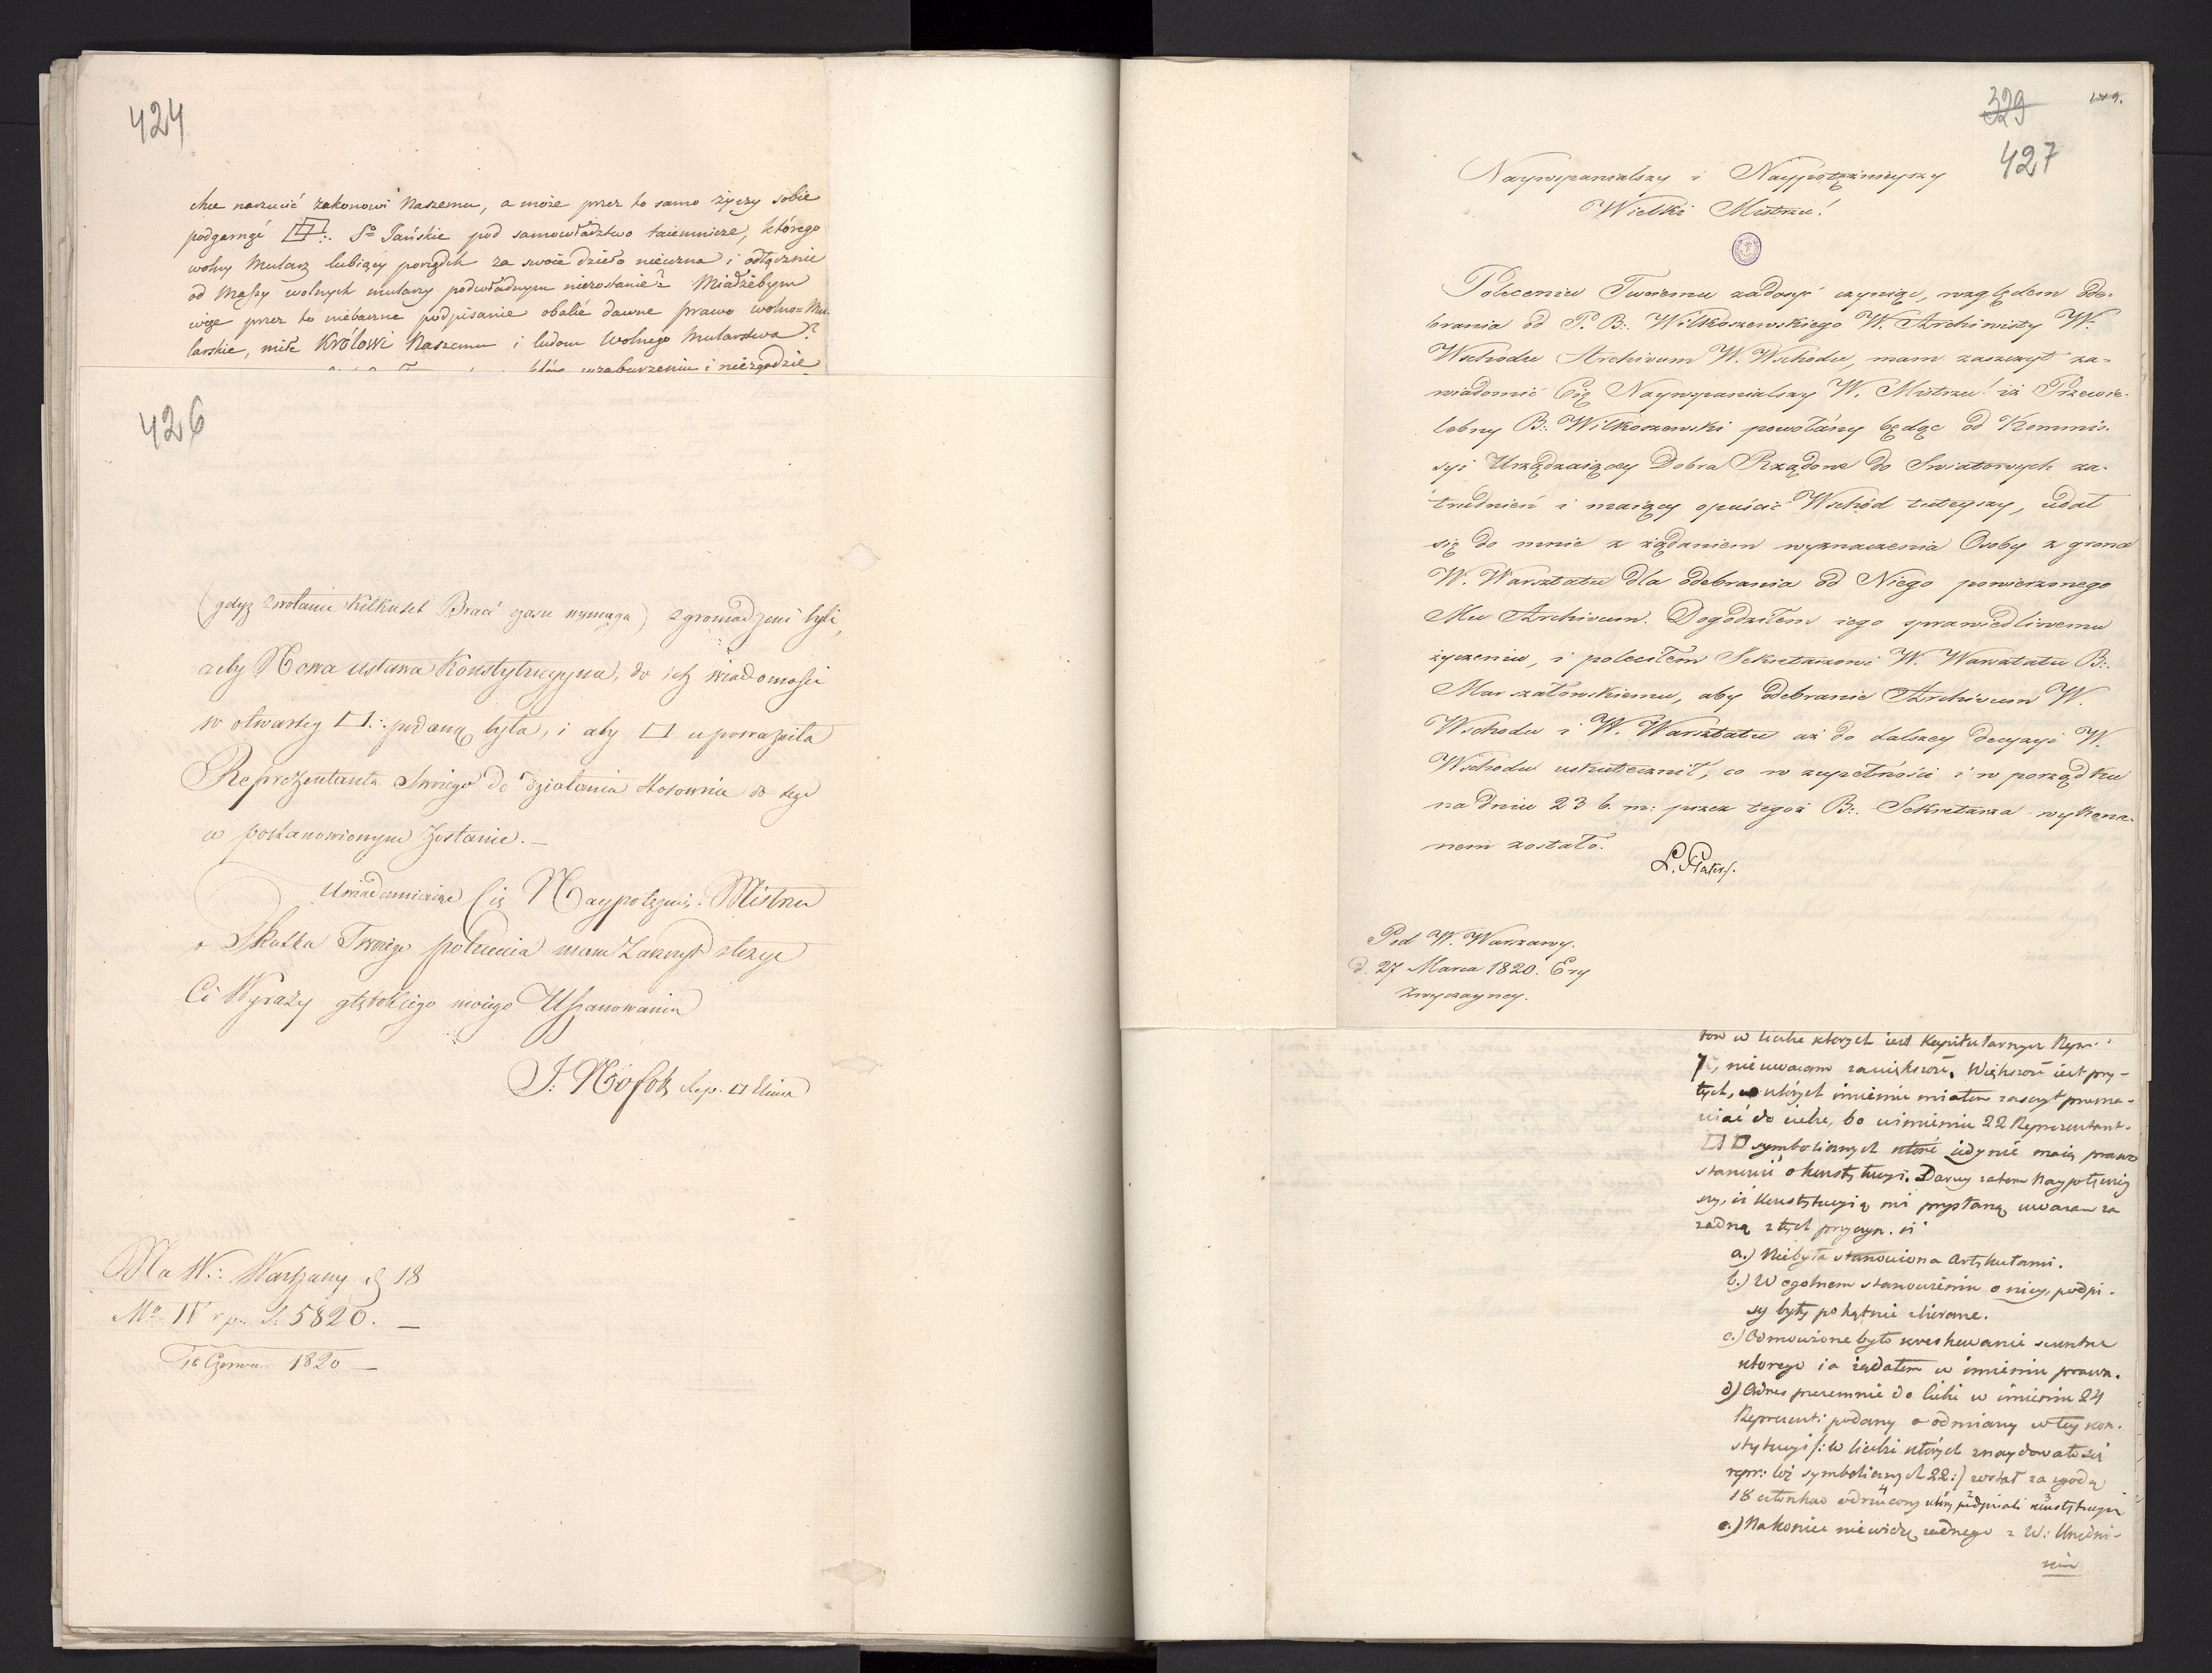 424
chce narzucić zakonowi Naszemu, a może przez to samo życzy sobie
podgarnąć □:. So Jańskie pod samowładztwo taiemnicze, którego
wolny Mularz lubiący porządek za swoie dzieło nieuzna i odłącznie
od Massy wolnych mularzy podwładnym niezostanie? Miałżebym
więc przez to niebaczne podpisanie obalić dawne prawo wolno=Mu-
larskie, miłe Królowi Naszemu i ludom Wolnego Mularstwa?
wzburzeniu i niezgodzie
426
(gdyż zwołanie kilkuset Braci czasu wymaga) zgromadzeni byli,
ażeby Nowa ustawa Konstytucyjna, do ich wiadomości
w otwartey □:. podaną była, i aby □ upoważniła
Reprezentanta Swoiego do działania stosownie do tego
co postanowionym zostanie. —
Uwiadamiaiąc Cię Naypotężniey: Mistrzu
o Skutku Twoiego polecenia mam Zaszczyt złożyć
Ci Wyrazy głębokiego moiego Uszanowania
Rep. □
Na W:. Warszawy d 18
Mca IV r. p. S. 5820. —
18 Czerwca 1820 —
329
427
Naywspanialszy i Naypotężnieyszy
Wielki Mistrzu!
Poleceniu Twoiemu zadosyć czyniąc, względem ode-
brania od P. B:. Wilkoszewskiego W. Archiwisty W.
Wschodu Archivum W. Wschodu, mam zaszczyt za-
wiadomić Cię Naywspanialszy W. Mistrzu! iż Przewie-
lebny B:. Wilkoszewski powołany będąc od Kommis-
syi Urządzaiącey Dobra Rządowe do Swiatowych za-
trudnień i maiący opuścić Wschód tuteyszy, udał
się do mnie z żądaniem wyznaczenia Osoby z grona
W. Warsztatu dla odebrania od Niego powierzonego
Mu Archivum. Dogodziłem iego sprawiedliwemu
życzeniu, i poleciłem Sekretarzowi W. Warsztatu B:.
Marszałowskiemu, aby odebranie Archivum W.
Wschodu i W. Warsztatu aż do dalszey decyzyi W.
Wschodu uskutecznił, co w zupełności i w porządku
na dniu 23 b. m: przez tegoż B:. Sekretarza wykona-
nem zostało.
L. Plater.
Pod W. Warszawy.
d. 27 Marca 1820. Ery
zwyczayney.
tow w liczbie ktorych iest Kapitularnych Repr:
7, nieuważam za większość. Większość iest przy
tych, w których imieniu miałem zaszczyt przema-
wiać do ciebie, bo w imieniu 22 Reprezentant.
□ □ symbolicznych które iedynie maią prawo
stanowić o konstytucyi. Daruy zatem Naypotężniey
szy, iż Konstytucyią mi przysłaną uważam za
żadną z tych przyczyn. iż
a.) Niebyła stanowiona Artykułami.
b.) W ogolnem stanowieniu o niey, podpi-
sy były pokątnie zbierane.
c.) Odmowione było kreskowanie sekretne
ktorego ia żądałem w imieniu prawa.
d) Adres przezemnie do Ciebie w imieniu 24
Reprezent: podany o odmiany w tey kon-
stytucyi /: w liczbie których znaydowało się
repr: lóż symbolicznych 22:/ został za zgodą
18 członkow odrzucony którzy podpisali konstytucyią
e.) Nakoniec niewidzę żadnego z W: Urzędni-
ków